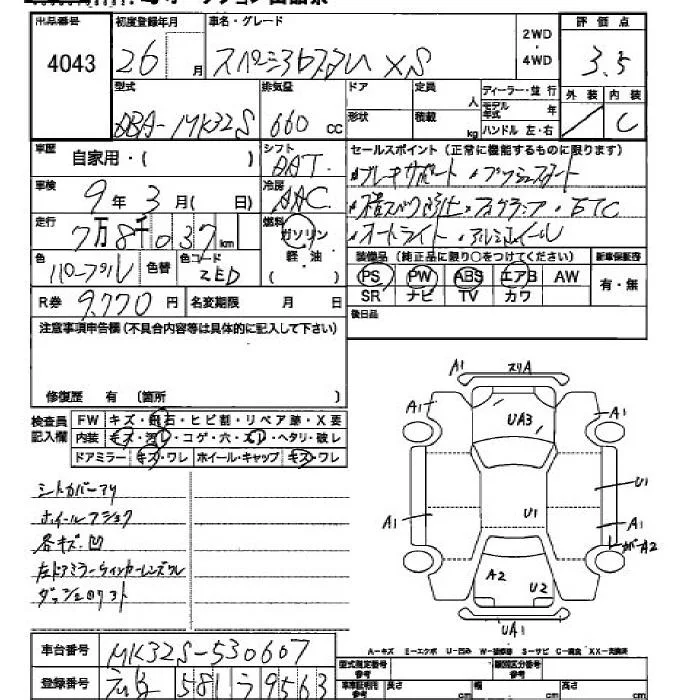 出品番号 初度登録年月 車名・グレード 2WD・4WD 評価点
4043 26年 月 スペーシアカスタム XS 3.5
型式 排気量 ドア 定員 人 ディーラー・並行 外装 内装
DBA-MK32S 660 cc 形状 積載 kg モデル年式 年 ハンドル 左・右 C
車歴 自家用・( ) シフト AAT セールスポイント(正常に機能するものに限ります)
車検 9年 3月( 日) 冷房 AAC ・ブレーキサポート・プッシュスタート
走行 7万8千037km 燃料 ガソリン 軽油 ( )
・オートライト・アルミホイール
色 パープル 色替 色コード ZED 装備品(純正品に限り○をつけてください) 新車保証書
PS PW ABS エアB AW 有・無
R券 9,770円 名変期限 月 日 SR ナビ TV カワ
注意事項申告欄(不具合内容等は具体的に記入して下さい) 後日品
修復歴 有 〔箇所 〕
検査員記入欄 FW キズ・飛石・ヒビ割・リペア跡・X要
内装 キズ・汚レ・コゲ・穴・スレ・ヘタリ・破レ
ドアミラー キズ・ワレ ホイール・キャップ キズ・ワレ
シートカバーアリ
各キズ.凹
左ドアミラーウィンカーレンズワレ
A1 スリA
A1 A1
UA3
U1
A1 U1 A1
A2
A2 U2
UA1
A-キズ E-エクボ U-凹み W-補修跡 S-サビ C-腐食 XX-交換済
車台番号 MK32S-530607 型式指定番号 参考 類別区分番号 参考
登録番号 581 う 9563 車庫証明用 参考 長さ cm 幅 cm 高さ cm